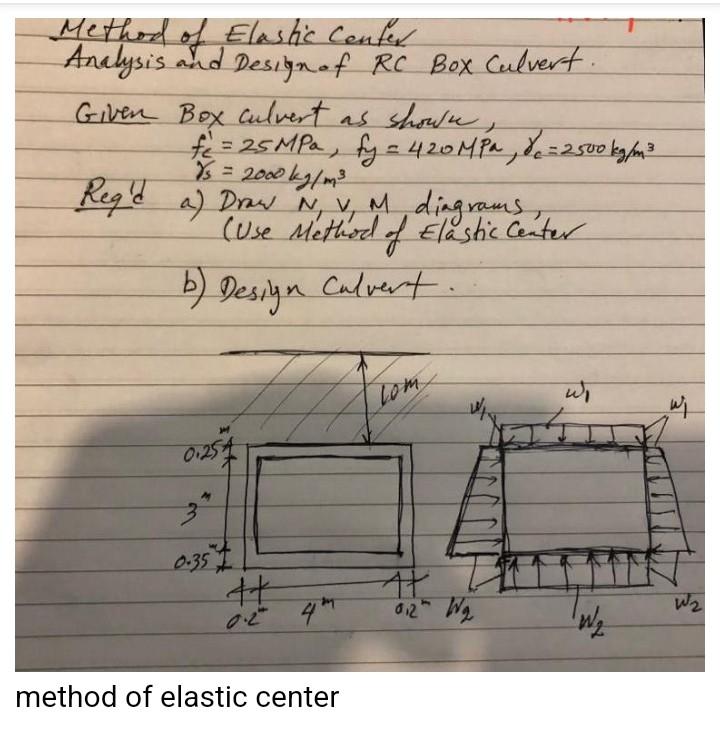 Method of Elastic Center
Analysis and Design of RC Box Culvert.
Given Box Culvert as shown,
fc' = 25 MPa, fy = 420 MPa, γc = 2500 kg/m³
γs = 2000 kg/m³
Req'd a) Draw N, V, M diagrams,
(Use Method of Elastic Center
b) Design Culvert.
10m
0.25m
3m
0.35m
0.2m 4m 0.2m
W1 W1 W1
W2 W2 W2
method of elastic center